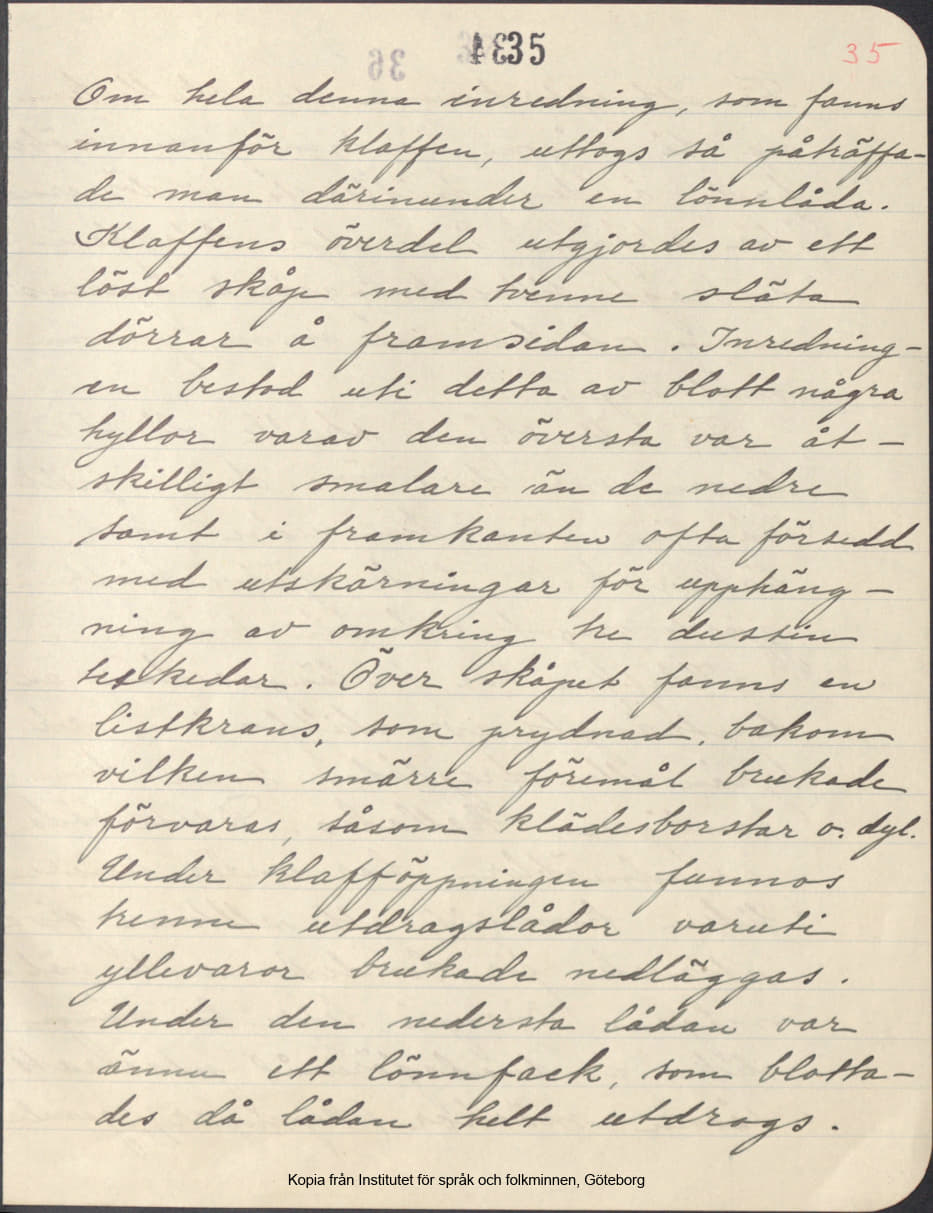 4835
35
Om hela denna inredning, som fanns
innanför klaffen, uttogs så påträffa-
de man därinunder en lönnlåda.
Klaffens överdel utgjordes av ett
löst skåp med tvenne släta
dörrar å framsidan. Inredning-
en bestod uti detta av blott några
hyllor varav den översta var åt-
skilligt smalare än de nedre
samt i framkanten ofta försedd
med utskärningar för upphäng-
ning av omkring tre dussin
teskedar. Över skåpet fanns en
listkrans, som prydnad, bakom
vilken smärre föremål brukade
förvaras, såsom klädesborstar o. dyl.
Under klafföppningen funnos
trenne utdragslådor varuti
yllevaror brukade nedläggas.
Under den nedersta lådan var
ännu ett lönnfack, som blotta-
des då lådan helt utdrogs.
Kopia från Institutet för språk och folkminnen, Göteborg